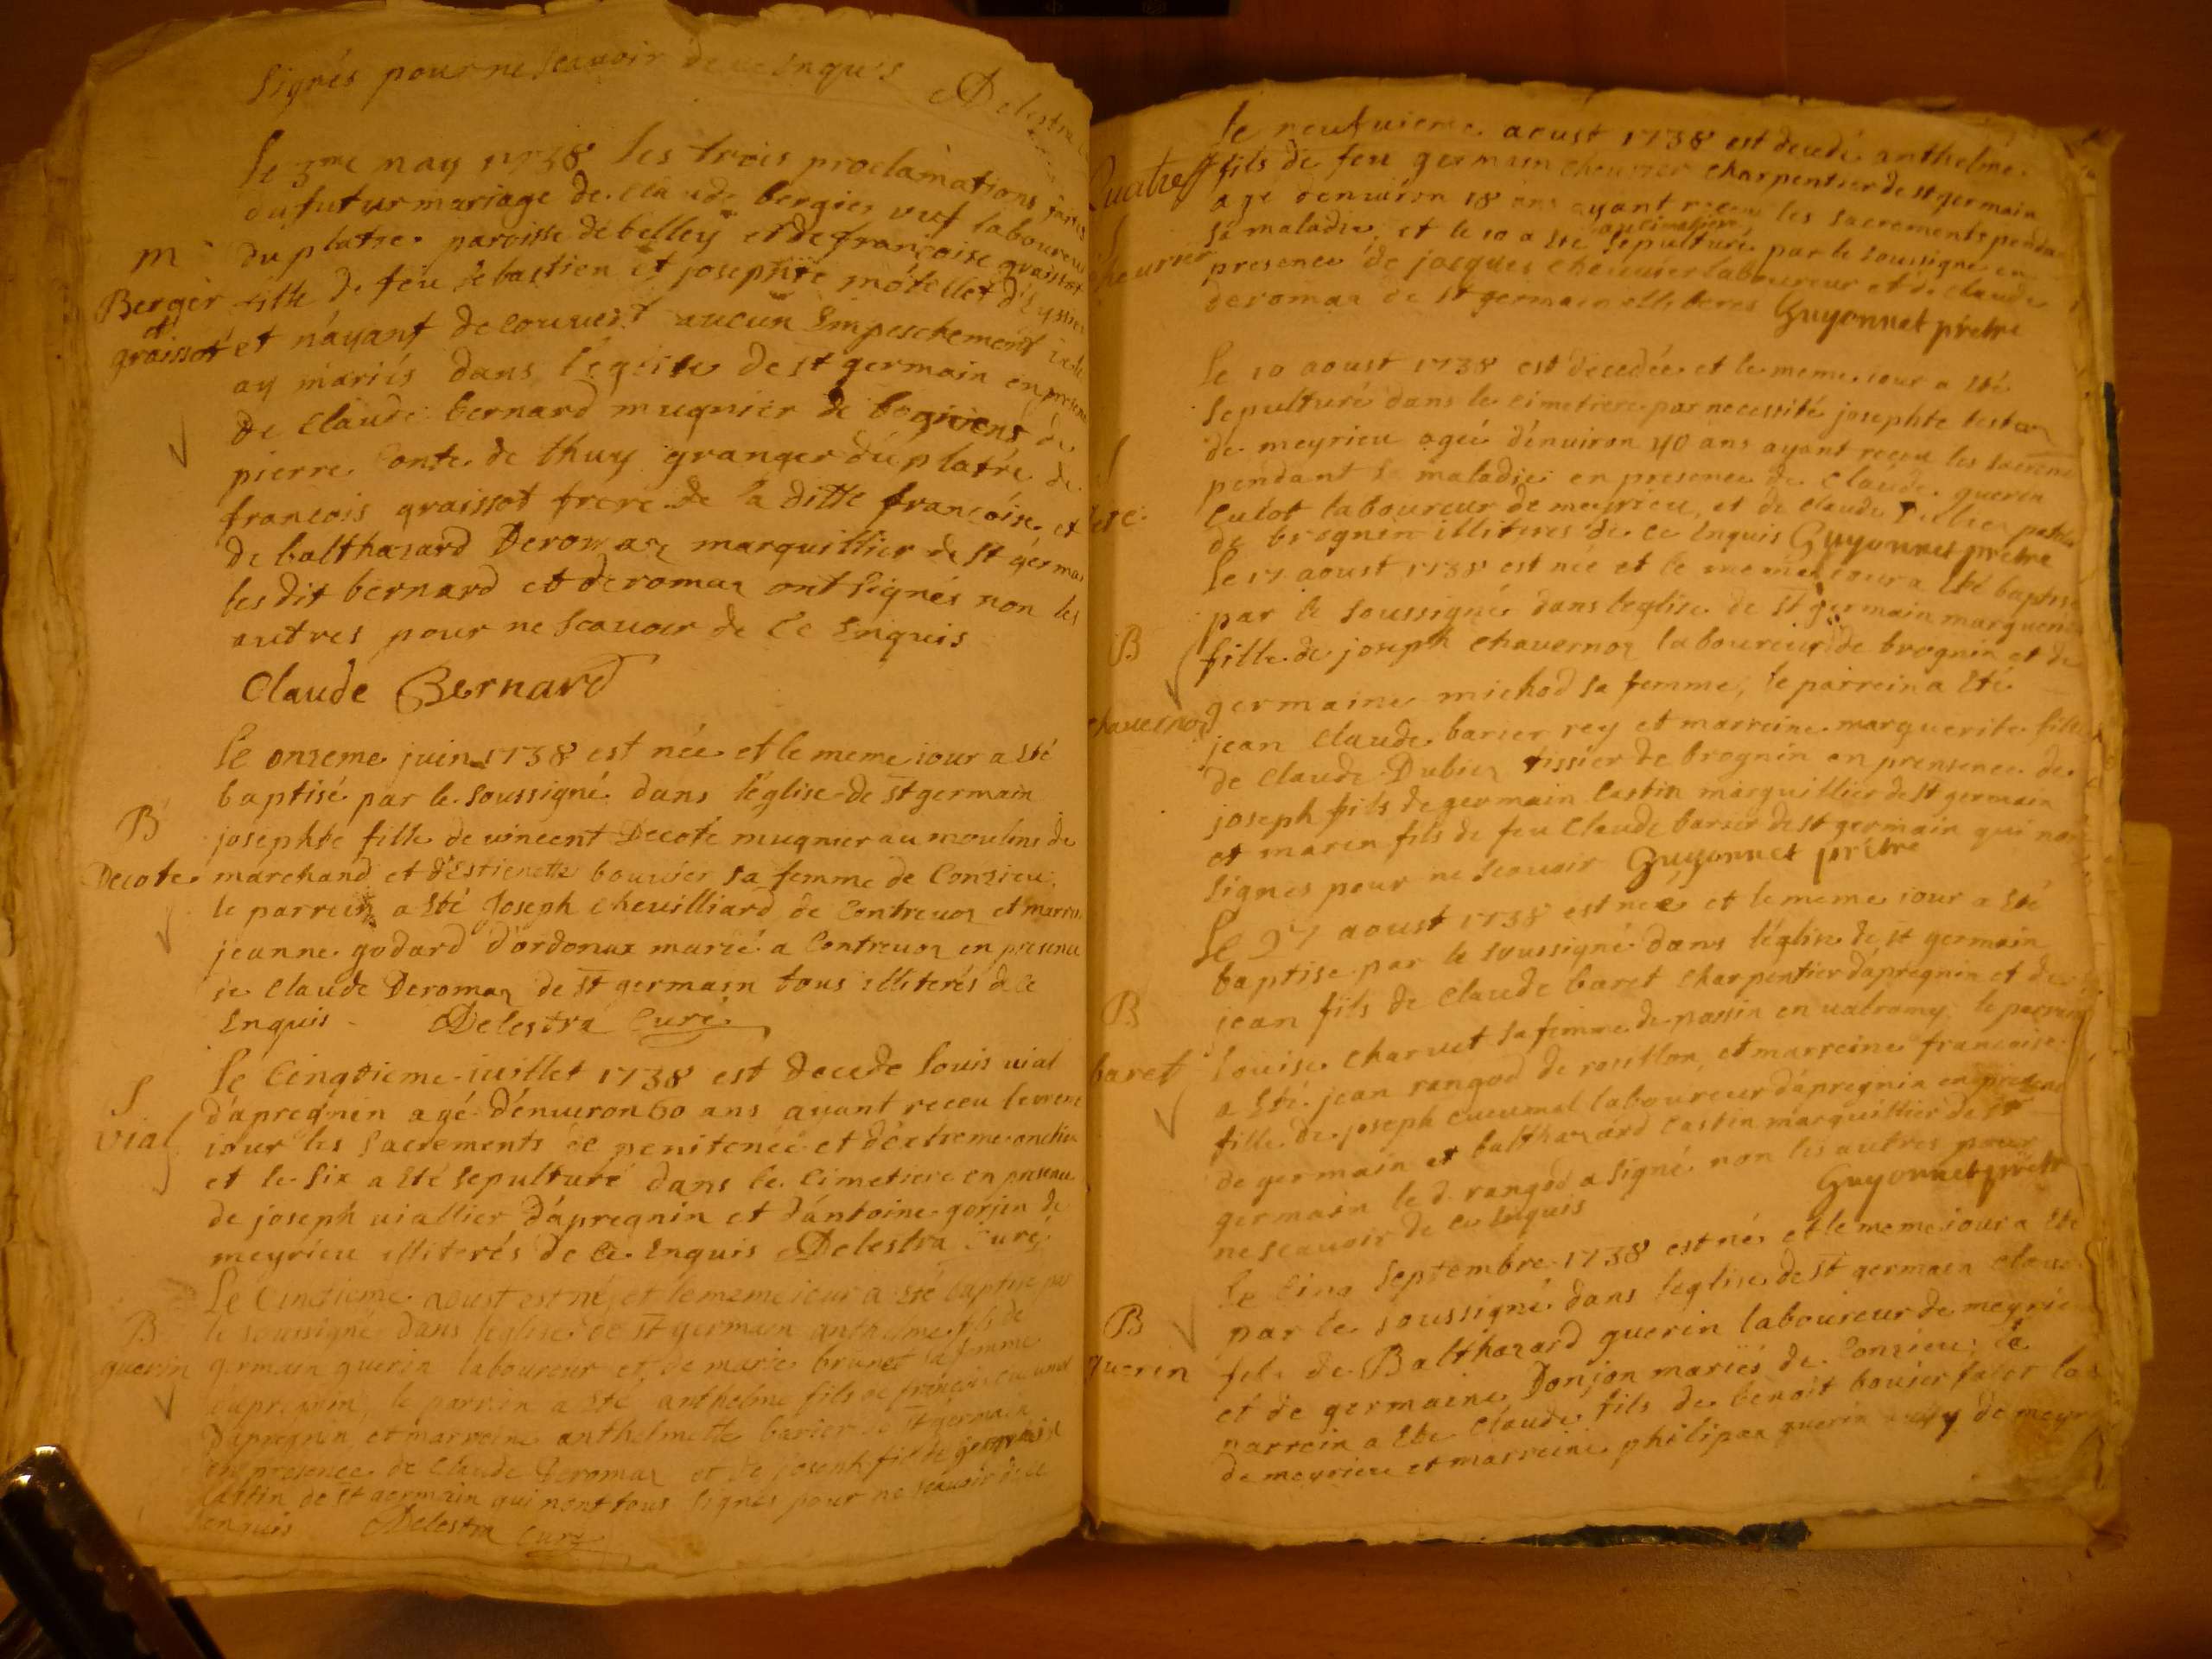 signés pour ne scavoir de ce Enquis Delestra
Le 3me may 1738 les trois proclamations faites
du futur mariage de claude bergier vuf laboureur
du platre paroisse de belley et de francoise graissot
m
Berger
et
graissot
fille de feu sebastien et josephte motellet d'Eyssieu
et n'ayant decouvert aucun Empeschement
ay mariés dans l'eglise de st germain en presence
de claude bernard mugnier de bognens de
pierre Conte de thuy granger du platre de
francois graissot frere de la ditte francoise et
de balthazard Deromaz marquillier de st germain
les dit bernard et deromaz ont signés non les
autres pour ne scavoir de ce Enquis
Claude Bernard
le onzeme juin 1738 est née et le meme iour a Eté
baptisé par le soussigné dans l'église de st germain
B
Decote
josephte fille de vincent Decote mugnier au moulins de
marchand et d'Estienette bouvier sa femme de Conzieu
le parrein a Eté Joseph chevilliard de Contrevoz et marreine
jeanne godard d'ordonnaz marié a Contrevoz en presence
de claude Deromaz de st germain tous illiterés de ce
Enquis Delestra Curé
S
vial
le Cinqtieme iuillet 1738 est decede louis vial
d'apregnin agé d'enuiron 60 ans ayant receu le meme
iour les sacrements de penitence et d'extreme onction
et le six a Eté sepulturé dans le cimetiere en presence
de joseph viallier d'apregnin et d'antoine gorjin de
meyrieu illiterés de ce Enquis Delestra Curé
B
guerin
Le Cinqtieme aoust est né et le meme iour a Eté baptise par
le soussigné dans l'eglise de st germain anthelme fils de
germain guerin laboureur et de marie brunet sa femme
d'apregnin, le parrein a Eté anthelme fils de francois
d'apregnin et marreine anthelmette barier de st germain
en presence de claude Deromaz et de joseph fils de germain
Castin de st germain qui n'ont tous signés pour ne scavoir de ce
enquis Delestra Curé
le neufvieme aoust 1738 est decedé anthelme
fils de feu germain cheurier charpentier de st germain
agé d'enuiron 18 ans ayant receu les sacrements pendant
cheurier
sa maladie et le 10 a Eté sepulturé au cimetiere par le soussigné en
presence de jacques cheurier laboureur et de claude
deromaz de st germain illiteres Guyonnet prêtre
le 10 aoust 1738 est decedée et le meme iour a Eté
sepulturé dans le cimetiere par necessité josephte
de meyrieu ageé d'enuiron 40 ans ayant receu les
pendant sa maladie en presence de Claude guerin
Culot laboureur de meyrieu et de claude
de brognin illiteres de ce Enquis Guyonnet prêtre
le 17 aoust 1738 est née et le meme iour a Eté baptisé
par le soussigné dans l'eglise de st germain marguerite
B
chavernoz
fille de joseph chavernoz laboureur de brognin et de
germaine michod sa femme, le parrein a Eté
jean claude barier rey et marreine marguerite fille
de claude Dubiez tissier de brognin en prensence de
joseph fils de germain Castin marguillier de st germain
et marin fils de feu claude barier de st germain qui n'ont
signés pour ne scavoir Guyonnet prêtre
Le 27 aoust 1738 est neé et le meme iour a Eté
baptise par le soussigné dans l'église de st germain
B
baret
jean fils de claude baret charpentier d'apregnin et de
louise charvet sa femme de passin en valromy le parrein
a Eté jean rangod de rossillon, et marreine francoise
fille de joseph cucumel laboureur d'apregnin en presence
de germain et balthazard Castin marquillier de st
germain le d. rangod a signé non les autres pour
ne scavoir de ce Enquis Guyonnet prêtre
le Cinq septembre 1738 est né et le meme iour a Eté
par le soussigné dans l'eglise de st germain claude
B
guerin
fils de Balthazard guerin laboureur de meyrieu
et de germaine Donjon mariés de Conzieu; le
parrein a Ete Claude fils de benoit bouvier
de meyrieu et marreine philipaz guerin